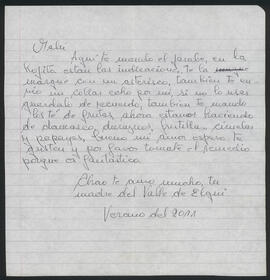 Malú
Aquí te mando el jarabe, en la
hojita están las indicaciones, te la
marqué con un asterisco, también te en-
vío un collar echo por mi, si no lo usas
guardalo de recuerdo, también te mando
de frutas, ahora estamos haciendo
de damasco, duraznos, frutilla, ciruelas
y papayas, bueno mi amor espero te
gusten y por favor tomate el remedio
porque es fantástico.
Chao te amo mucho, tu
madre del Valle de Elqui
Verano del 2011